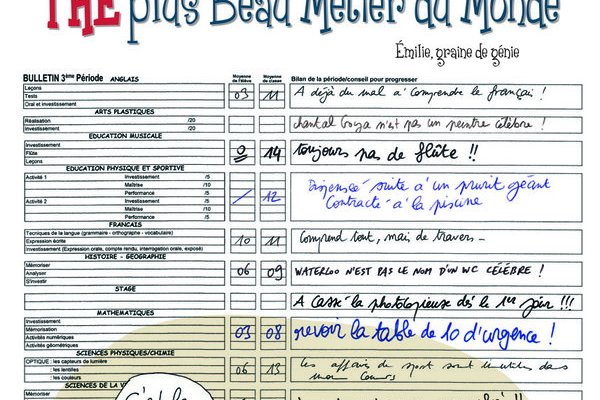 THE plus Beau Métier du Monde
Émilie, graine de génie
BULLETIN 3ème Période ANGLAIS Moyenne de l'élève Moyenne de classe Bilan de la période/conseil pour progresser
Leçons
Tests 03 11 A déjà du mal à comprendre le français !
Oral et investissement
ARTS PLASTIQUES
Réalisation /20 chantal Goya n'est pas un peintre célèbre !
Investissement /20
EDUCATION MUSICALE
Investissement
Flûte 0 14 toujours pas de flûte !!
Leçons
EDUCATION PHYSIQUE ET SPORTIVE
Activité 1 Investissement /5
Maîtrise /10 Dispensée suite à un prurit géant
Performance /5
Activité 2 Investissement /5 / 12 contracté à la piscine
Maîtrise /10
Performance /5
FRANCAIS
Techniques de la langue (grammaire - orthographe - vocabulaire)
Expression écrite 10 11 Comprend tout, mai de travers...
Investissement (Expression orale, compte rendu, interrogation orale, exposé)
HISTOIRE - GEOGRAPHIE
Mémoriser
Analyser 06 09 WATERLOO N'EST PAS LE NOM D'UN WC CÉLÈBRE !
S'investir
STAGE
A CASSÉ la photocopieuse dès le 1er jour !!!
MATHEMATIQUES
Investissement
Mémorisation 03 08 revoir la table de 10 d'urgence !
Activités numériques
Activités géométriques
SCIENCES PHYSIQUES/CHIMIE
OPTIQUE : les capteurs de lumière les affaires de sport sont inutiles dans
: les lentilles 06 13 mon cours
: les couleurs
SCIENCES DE LA V
Mémoriser
c'est la